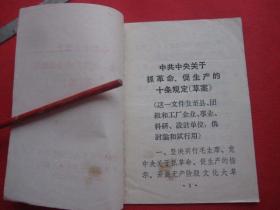 中共中央关于
抓革命、促生产的
十条规定(草案)
(这一文件发至县、团
级和工厂企业、事业、
科研、设计单位，供
讨论和试行用)
一、坚决实行毛主席、党
中央关于抓革命、促生产的指
示，开展无产阶级文化大革
· 1 ·